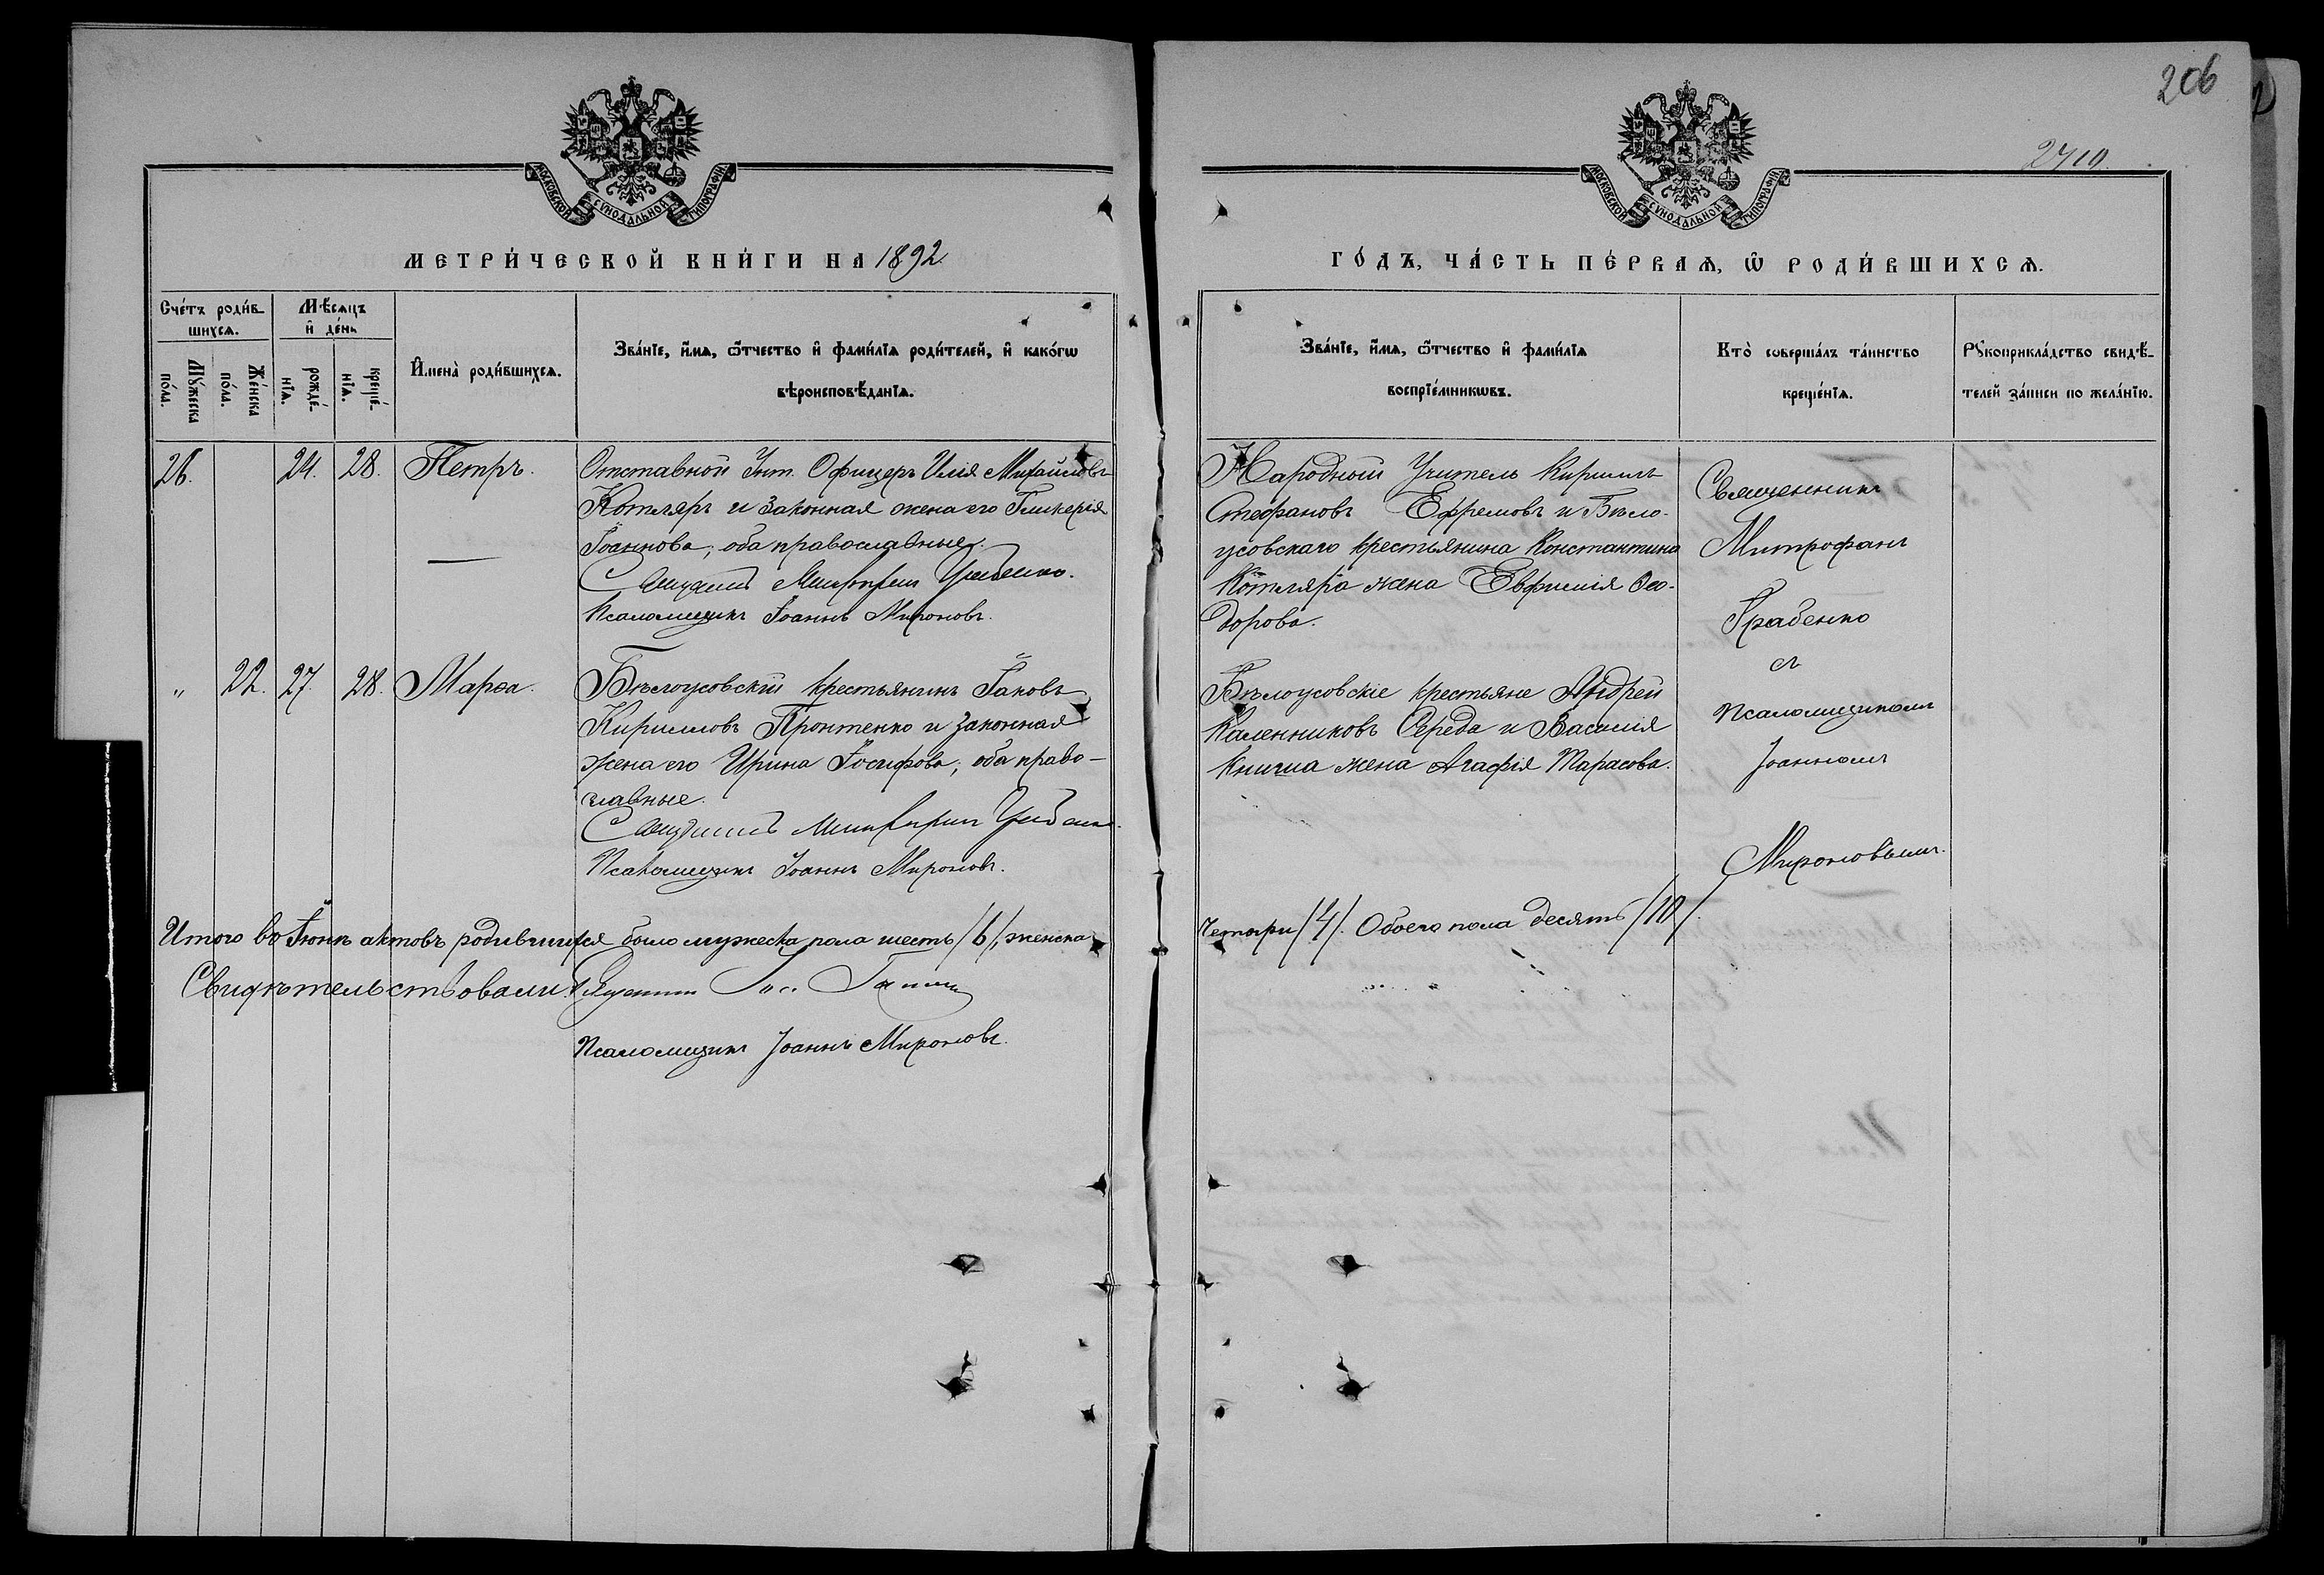 206
2710
МОСКОВСКОЙ СѴНОДАЛЬНОЙ ТИПОГРАФІИ
МОСКОВСКОЙ СѴНОДАЛЬНОЙ ТИПОГРАФІИ
МЕТРИ́ЧЕСКОЙ КНИ́ГИ НА 1892.
ГО́ДЪ, ЧА́СТЬ ПЕ́РВАѦ, Ѡ҆ РОДИ́ВШИХСѦ.
Сче́тъ роди́в-
шихсѧ.
Мꙋ́жеска по́ла.
Же́нска по́ла.
Мѣ́сѧцъ
и҆ де́нь
рожде́-
нїѧ.
креще́-
нїѧ.
И҆мена̀ роди́вшихсѧ.
Зва́нїе, и҆́мѧ, ѻ҆́тчество и҆ фами́лїѧ роди́телей, и҆ како́гѡ
вѣроисповѣ́данїѧ.
Зва́нїе, и҆́мѧ, ѻ҆́тчество и҆ фами́лїѧ
воспрїе́мникѡвъ.
Кто̀ соверша́лъ та́инство
креще́нїѧ.
Рꙋкоприкла́дство свидѣ́-
телей за́писи по жела́нїю.
26. 24. 28. Петръ.
Отставной Унт. Офицеръ Илія Михайловъ
Котляръ и законная жена его Гликерія
Іоаннова, оба православные.
Священникъ Митрофанъ Грабенко.
Псаломщикъ Іоаннъ Мироновъ.
Народный Учитель Кириллъ
Стефановъ Ефремовъ и Бѣло-
усовскаго крестьянина Константина
Котляра жена Евфимія Ѳео-
дорова.
Священникъ
Митрофанъ
Грабенко
съ
псаломщикомъ
Іоанномъ
Мироновымъ.
" 22. 27. 28. Марѳа.
Бѣлоусовскій крестьянинъ Іаковъ
Кирилловъ Пронтенко и законная
жена его Ирина Іосифова, оба право-
славные.
Священникъ Митрофанъ Грабенко.
Псаломщикъ Іоаннъ Мироновъ.
Бѣлоусовскіе крестьяне Андрей
Каленниковъ Середа и Василія
Книгиа жена Агафія Тарасова.
Итого во Іюнѣ актовъ родившихся было мужеска пола шесть /6/, женска
четыри /4/. Обоего пола десять /10/.
Свидѣтельствовали: Священникъ
Псаломщикъ Іоаннъ Мироновъ.